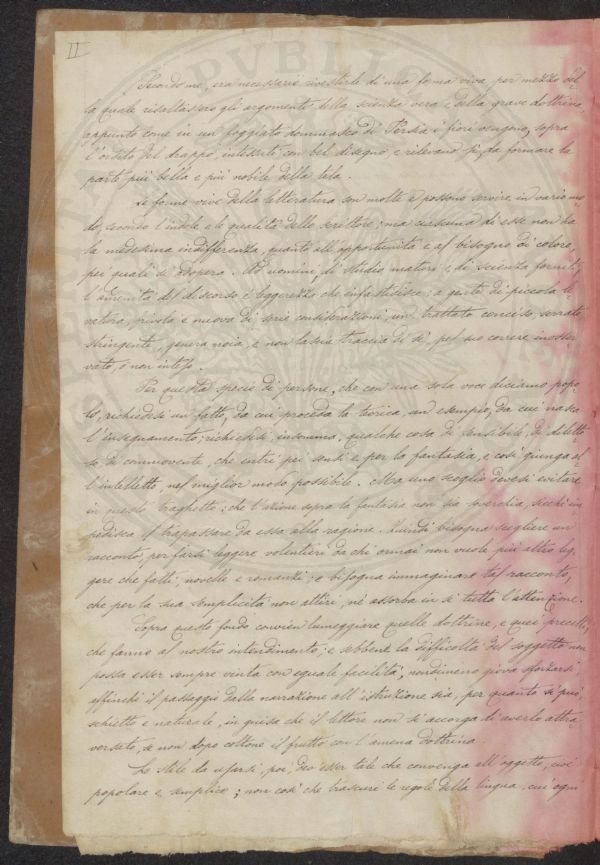 II
Secondo me, era necessario rivestirle di una forma viva per mezzo del-
la quale risaltassero gli argomenti della scienza vera e della grave dottrina,
appunto come in un foggiato dommasco di Persia i fiori vengono, sopra
l'ordito del drappo, intessuti con bel disegno, e rilevano sì, da formare la
parte più bella e più nobile della tela.
Le forme vive della letteratura son molte e possono servire in vario mo-
do, secondo l'indole e le qualità dello scrittore; ma ciascuna di esse non ha
la medesima indifferenza, quanto all'opportunità e al bisogno di coloro,
pei quali si adopera. Ad uomini di studio maturo e di scienza forniti,
l'amenità del discorso è leggerezza che infastidisce; a gente di piccola le-
vatura, nuova di serie considerazioni, un trattato conciso, serrato,
stringente, genera noia, e non lascia traccia di sè, pel suo correre inosser-
vato, o non inteso.
Per questa specie di persone, che con una sola voce diciamo popo-
lo, richiedesi un fatto, da cui proceda la teorica, un esempio, da cui nasca
l'insegnamento; richiedesi, insomma, qualche cosa di sensibile, di diletto-
so, di commovente, che entri pei sensi e per la fantasia, e così giunga al-
l'intelletto, nel miglior modo possibile. Ma uno scoglio devesi evitare
in questo traghetto; che l'azione sopra la fantasia non sia soverchia, sicchè im-
pedisca il trapassare da essa alla ragione. Quindi bisogna scegliere un
racconto, per farsi leggere volentieri da chi ormai non vuole più altro leg-
gere che fatti, novelle e romanzi; e bisogna immaginare tal racconto,
che per la sua semplicità non attiri, nè assorba in sè tutta l'attenzione.
Sopra questo fondo convien lumeggiare quelle dottrine, e quei precetti,
che fanno al nostro intendimento; e sebbene la difficoltà del soggetto non
possa esser sempre vinta con eguale facilità, nondimeno giova sforzarsi,
affinchè il passaggio dalla narrazione all'istruzione sia, per quanto si può,
schietto e naturale, in guisa che il lettore non si accorga di averlo attra-
versato, se non dopo coltone il frutto con l'amena dottrina.
Lo stile da usarsi, poi, deve esser tale che convenga all'oggetto, cioè
popolare e semplice; non così che trascuri le regole della lingua, cui ogni